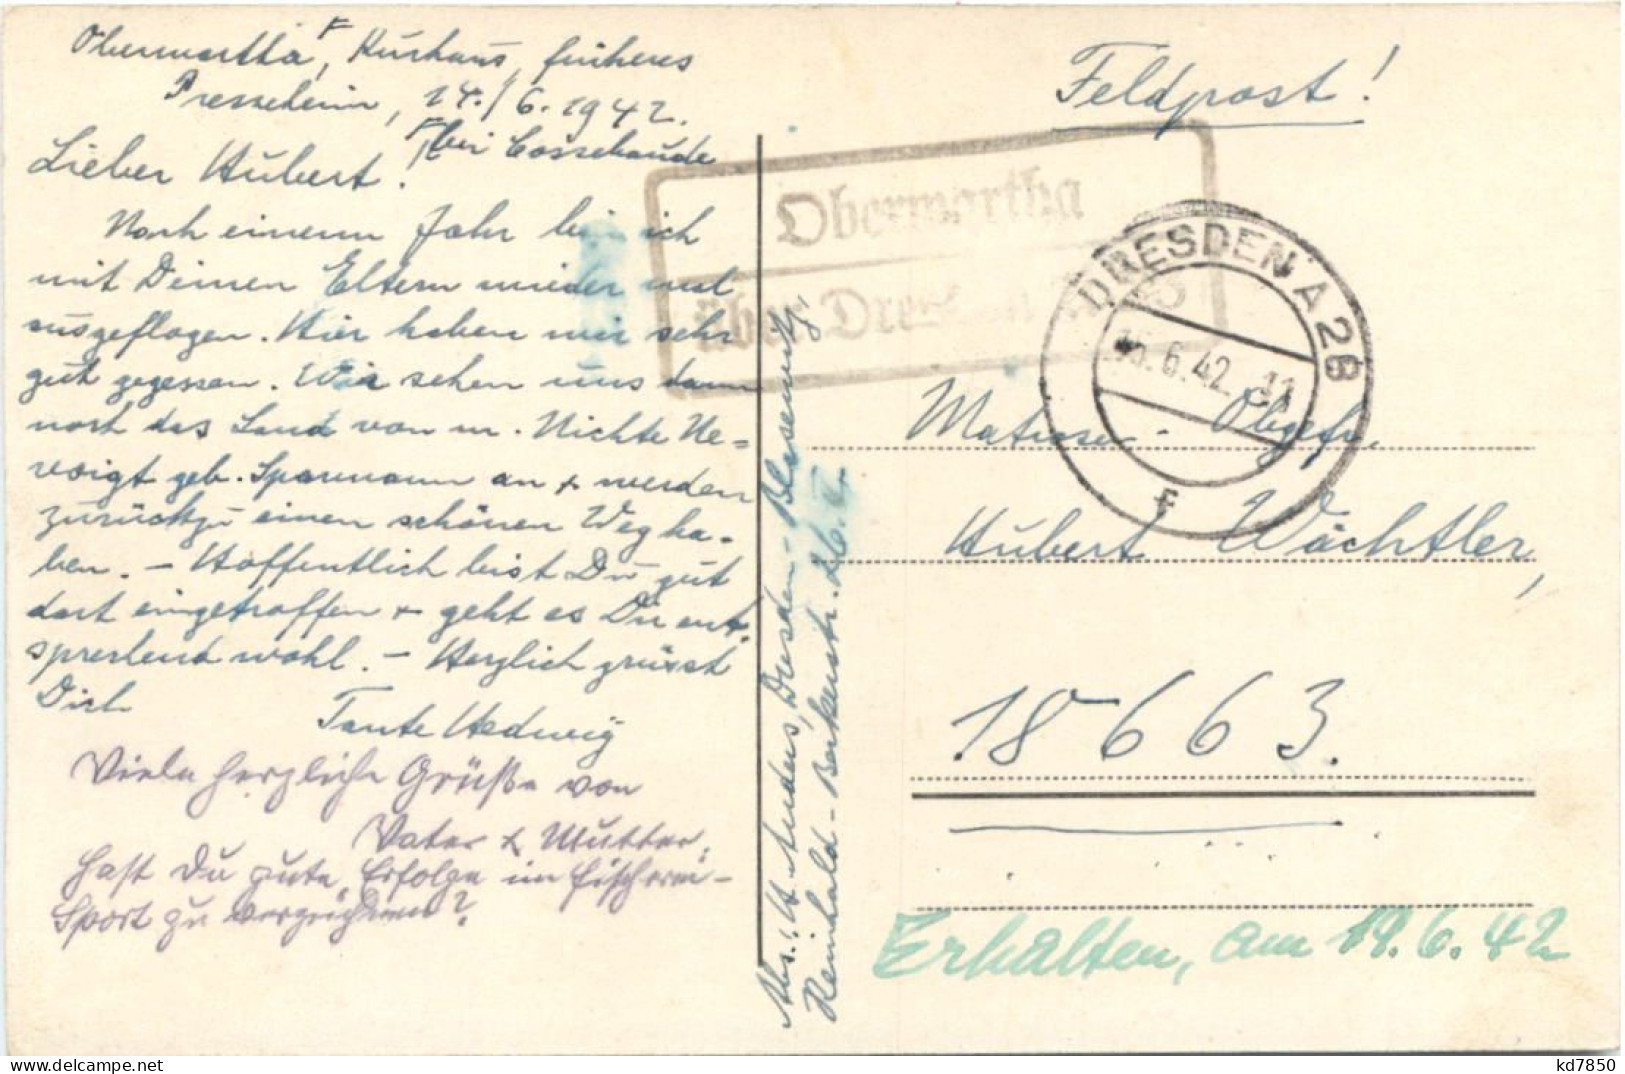 Obermartha, Kurhaus, früheres
Presseheim, 14./6.1942.
bei Cossebaude
Lieber Hubert!
Nach einem Jahr bin ich
mit Deinen Eltern wieder mal
ausgeflogen. Hier haben wir sehr
gut gegessen. Wir sehen uns dann
noch das Land von m. Nichte
geb. Sparmann an + werden
zurückzu einen schönen Weg ha-
ben. – Hoffentlich bist Du gut
dort eingetroffen + geht es Dir ent-
sprechend wohl. – Herzlich grüsst
Dich
Tante Hedwig
Viele herzliche Grüße von
Vater & Mutter,
Hast Du gute Erfolge im Fischerei-
Sport zu verzeichnen?
Abs.: H. Anders, Dresden-Blasewitz,
Reinhold-Beckerstr.
Feldpost!
Obermartha
über Dresden
DRESDEN A 28
15.6.42.11
F
Matrosen-Obgefr.
Hubert Wächtler,
18663.
Erhalten, am 19.6.42
kd7850